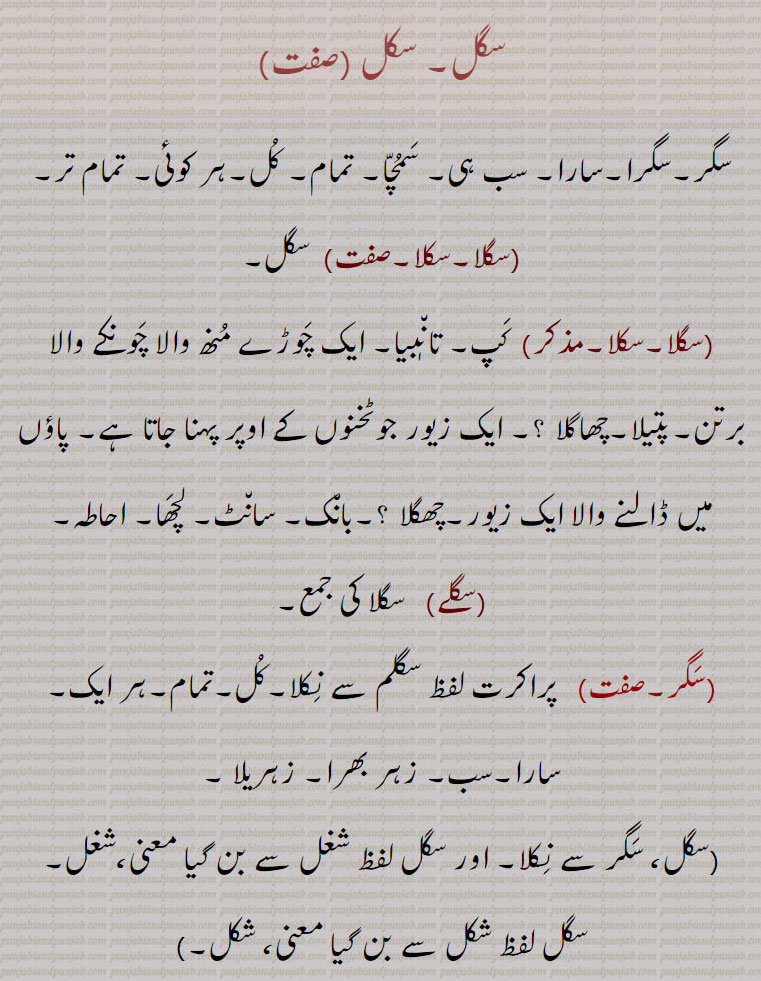 سگل۔ سکل (صفت)
سگر۔سگرا۔سارا۔ سب ہی۔ سَمُچّا۔ تمام۔ کُل۔ہر کوئی۔ تمام تر۔
(سگلا۔سکلا۔صفت) سگل۔
(سگلا۔سکلا۔مذکر) کَپ۔ تانٛبیا۔ ایک چَوڑے مُنھ والا چَونکے والا
برتن۔پتیلا۔چھاگلا ؟۔ ایک زیور جو ٹخنوں کے اوپر پہنا جاتا ہے۔ پاؤں
میں ڈالنے والا ایک زیور۔چھگلا ؟۔بانٛک۔ سانٛٹ۔ لچھّا۔ احاطہ۔
(سگلے) سگلا کی جمع۔
(سَگر۔صفت) پراکرت لفظ سگلم سے نِکلا۔کُل۔تمام۔ہر ایک۔
سارا۔سب۔ زہر بھرا۔ زہریلا ۔
(سگل، سَگر سے نِکلا۔ اور سگل لفظ شغل سے بن گیا معنی،شغل۔
سگل لفظ شکل سے بن گیا معنی، شکل۔)